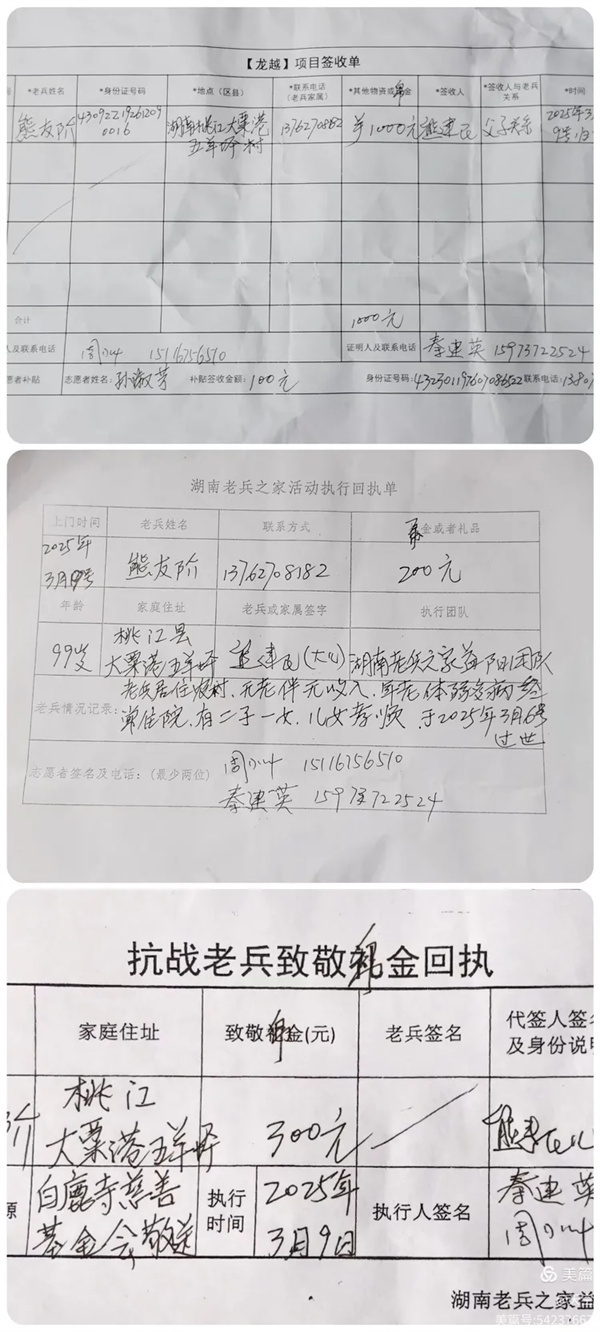 【龙越】项目签收单
号 *老兵姓名 *身份证号码 *地点（区县） *联系电话（老兵家属） *其他物资或帛金 *签收人 *签收人与老兵关系 *时间
熊友阶 湖南桃江大栗港五羊坪村 ￥1000元 熊建 父子关系 2025年3 9号
合计 1000元
人及联系电话 周 15116756510 证明人及联系电话 秦建英 15973722524
愿者补贴 志愿者姓名：孙淑芳 补贴签收金额：100元 身份证号码:432301197607086522 联系电话:
湖南老兵之家活动执行回执单
上门时间 老兵姓名 联系方式 帛金或者礼品
2025年3月9号 熊友阶 13762708182 200元
年龄 家庭住址 老兵或家属签字 执行团队
99岁 桃江县大栗港五羊坪 熊建 湖南老兵之家益阳团队
老兵情况记录： 老兵居住农村、无老伴无收入、年老体弱多病经常住院、有二子一女、儿女孝顺 于2025年3月6号过世
志愿者签名及电话：（最少两位） 周 15116756510
秦建英 15973722524
抗战老兵致敬帛金回执
家庭住址 致敬帛金(元) 老兵签名 代签人签 及身份说明
阶 桃江大栗港五羊坪 300元 熊建
源 白鹿寺慈善基金会敬送 执行时间 2025年3月9日 执行人签名 秦建英 周
湖南老兵之家益
美篇
美篇号:5423766